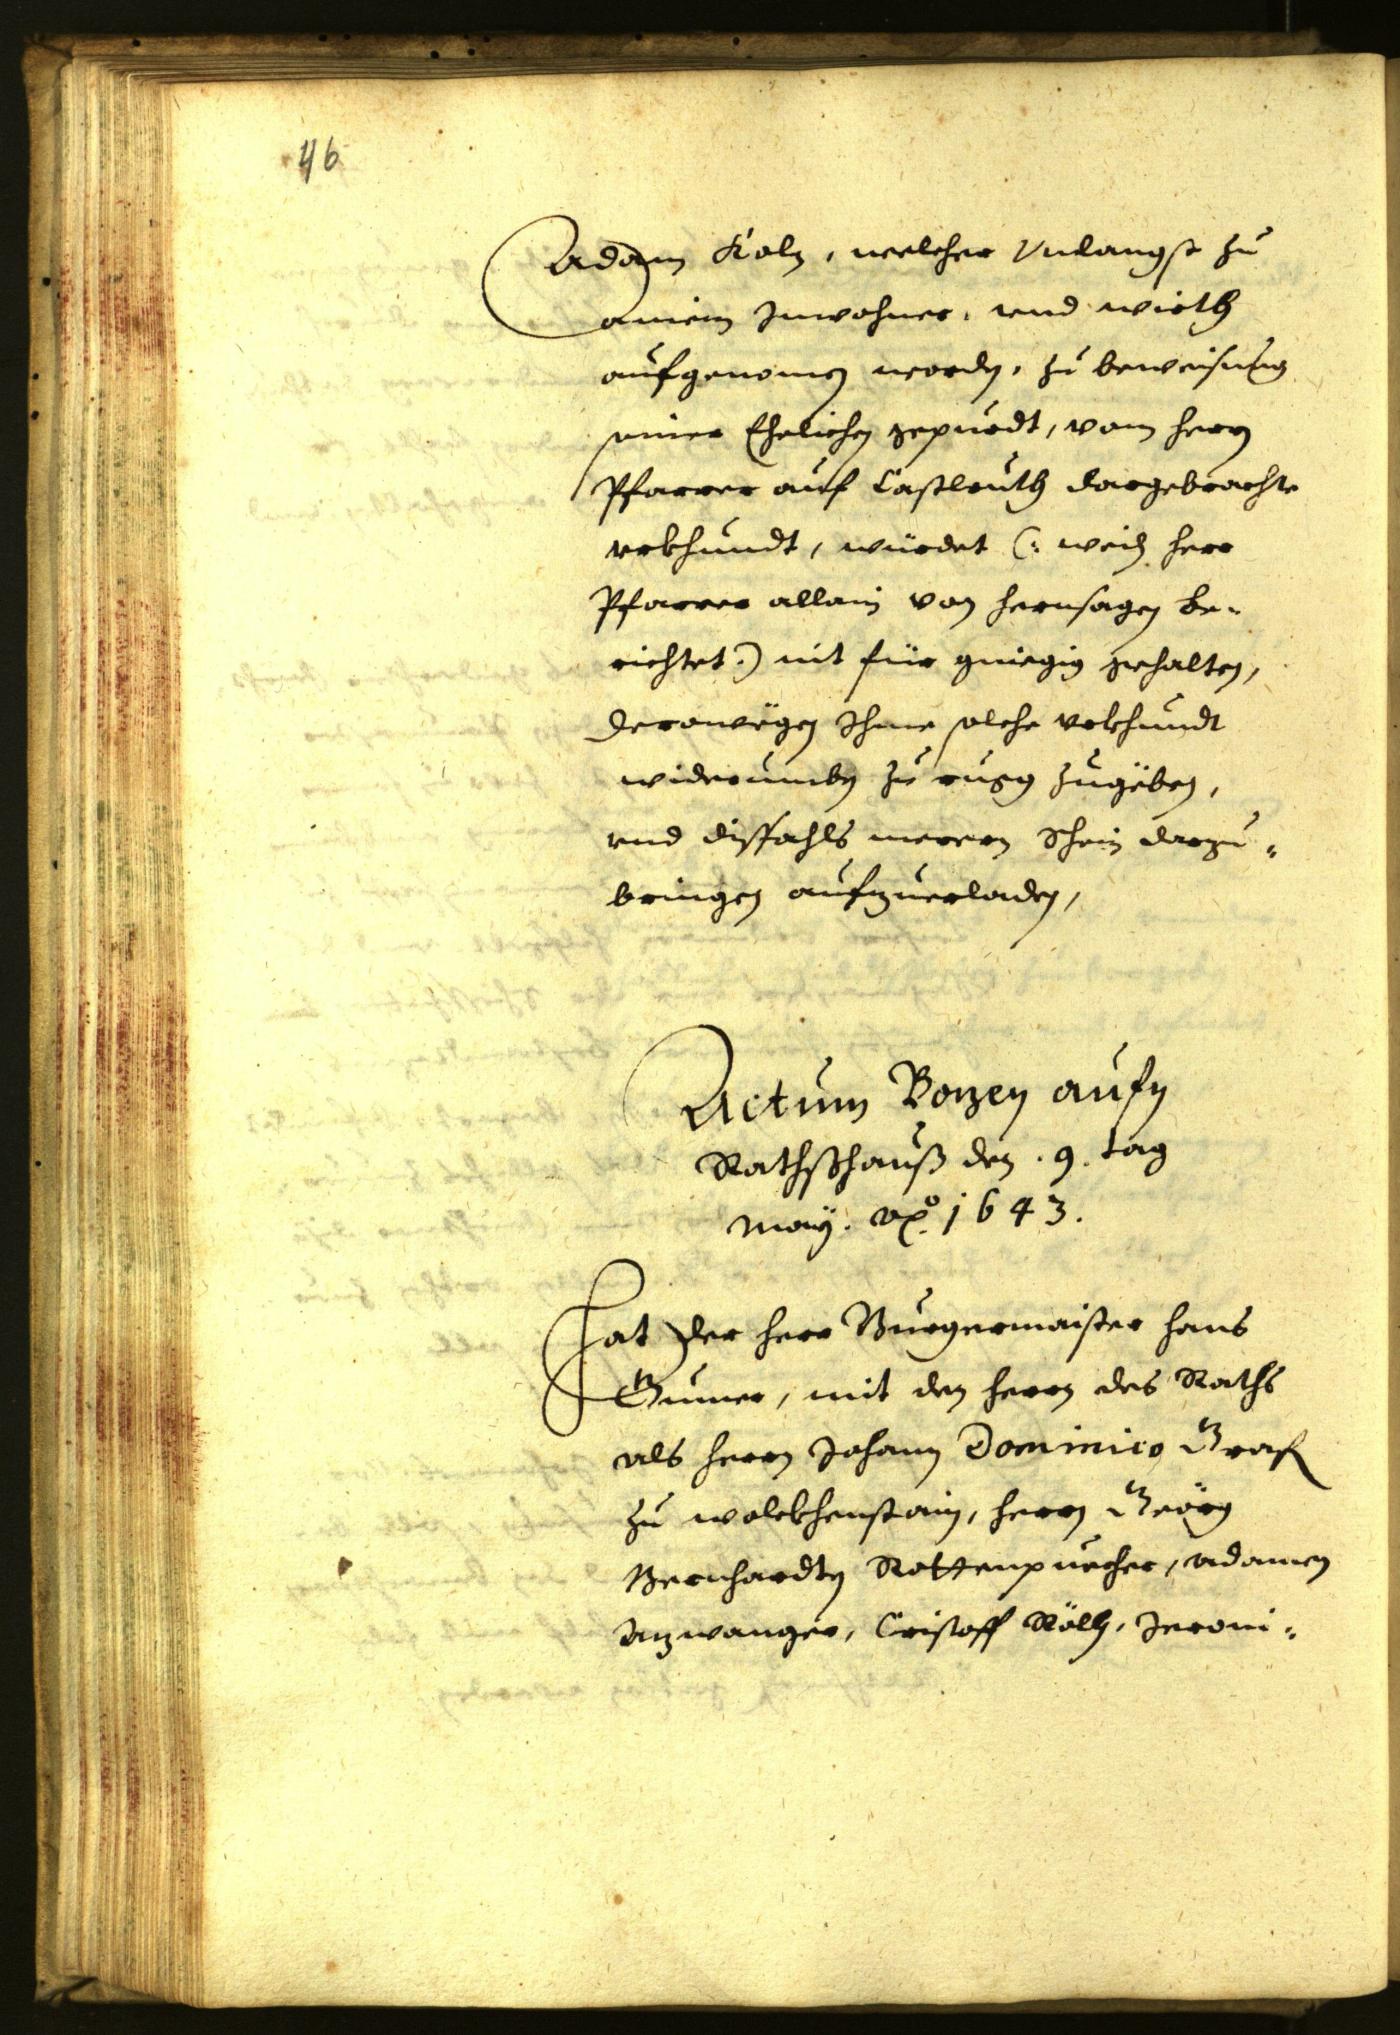 46
Adam Kolz, welcher Vnlangst zu
ainem Inwohner, vnd wirth
aufgenomen worden, zu beweisung
seiner Ehelichen gepurdt, vom herrn
Pfarrer auf Castlruth dargebrachte
vrkhundt, würdet (: weil herr
Pfarrer allain von hernsagen be-
richtet :) nit für gniegig gehalten,
derowegen Ihme solche vrkhundt
widerumben zu rugg zugeben,
vnd dissfahls merern Schein darzu-
bringen aufzuerladen,
Actum Bozen aufn
Rathsshauß den .9. tag
May. Ao. 1643.
Hat der herr Burgermaister hans
Gumer, mit den herrn des Raths
als herrn Johann Dominico Graf
zu wolckhenstain, herrn Geörg
Bernhardten Rottenpuecher, Adamen
Anzwanger, Cristoff Röll, Jeroni-